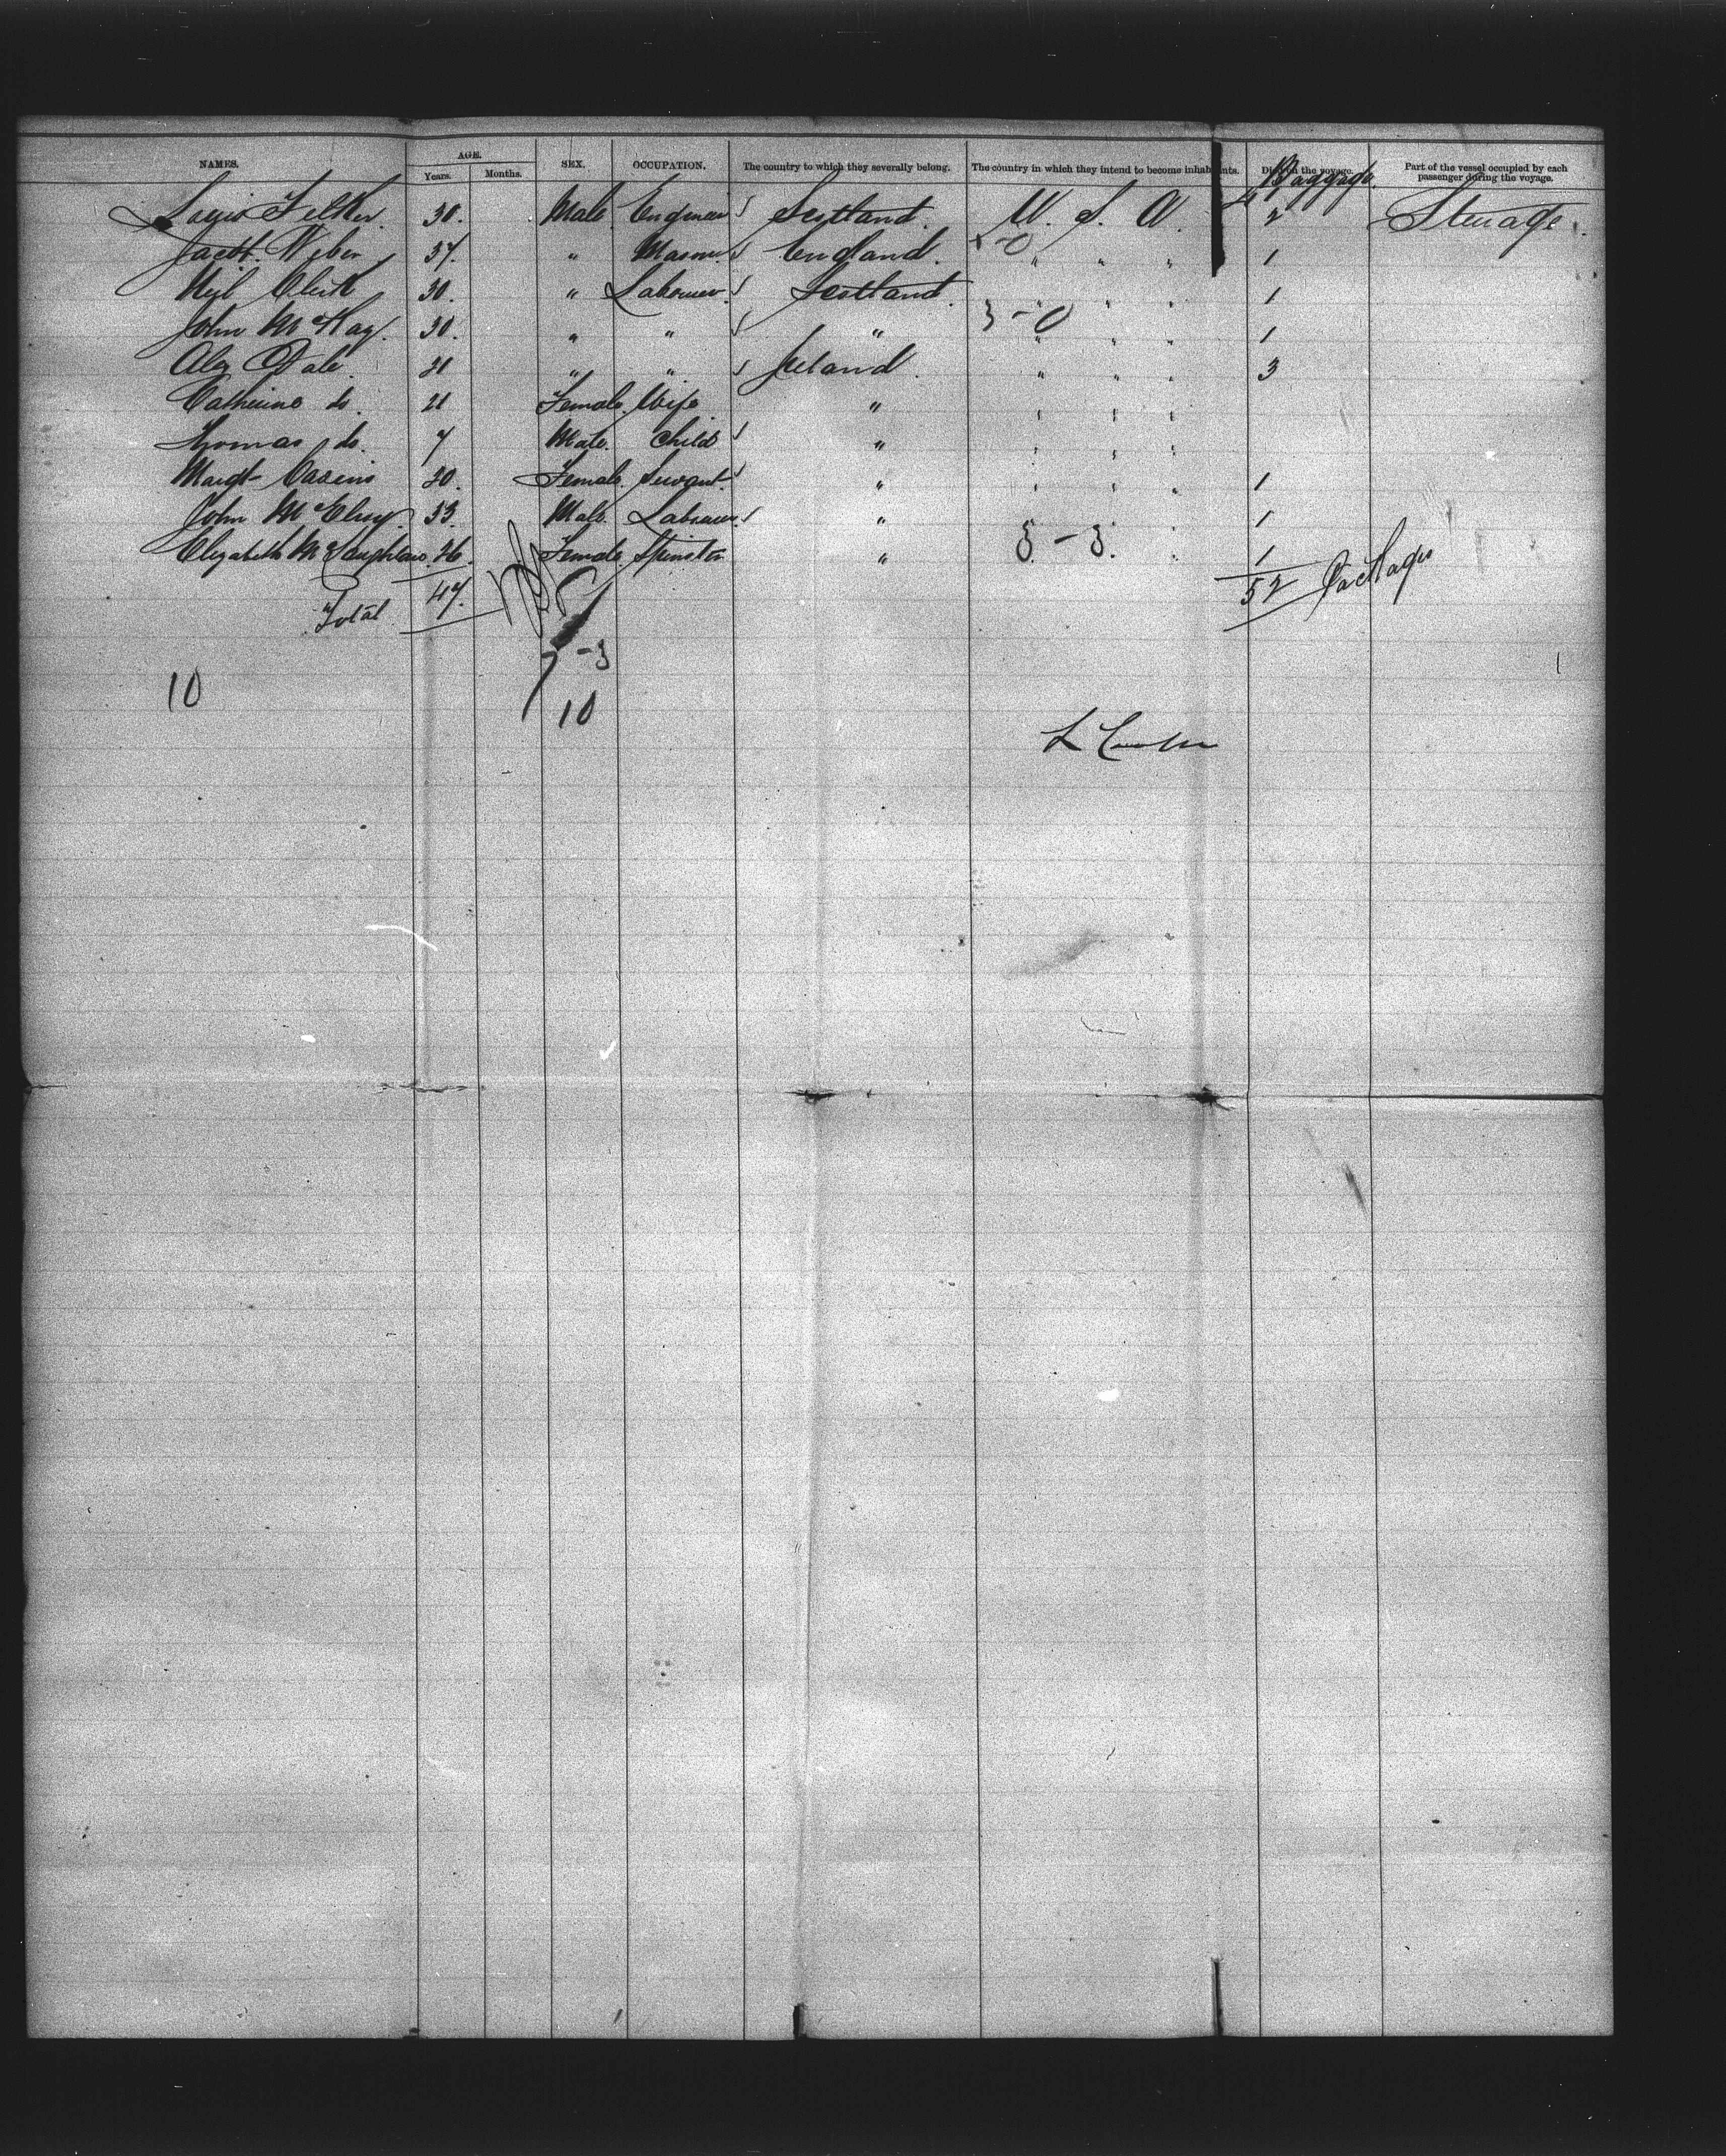 NAMES. AGE. SEX. OCCUPATION. The country to which they severally belong. The country in which they intend to become inhabitants. Died on the voyage. Part of the vessel occupied by each passenger during the voyage.
Years. Months. Baggage.
Louis Felker 30. Male Engineer Scotland. U. S. A. 2 Steerage.
Jacob Weber 37. " Mason England. " " " 1
Neil Clark 30. " Labourer Scotland. " " " 1
John McKay. 30. " " " 3-0 " " " 1
Alex Dale. 21 " " Ireland. " " " 3
Catherine do. 21 Female. Wife " " " "
Thomas do. 7 Male. Child " " " "
Margt 20. Female. Servant. " " " " 1
John McElroy. 33. Male. Labourer. " 1
Elizabeth McLaughlan. 26. Female. Spinster " 3-3. " 1
Total 47. 52 Packages
7-3
10
10